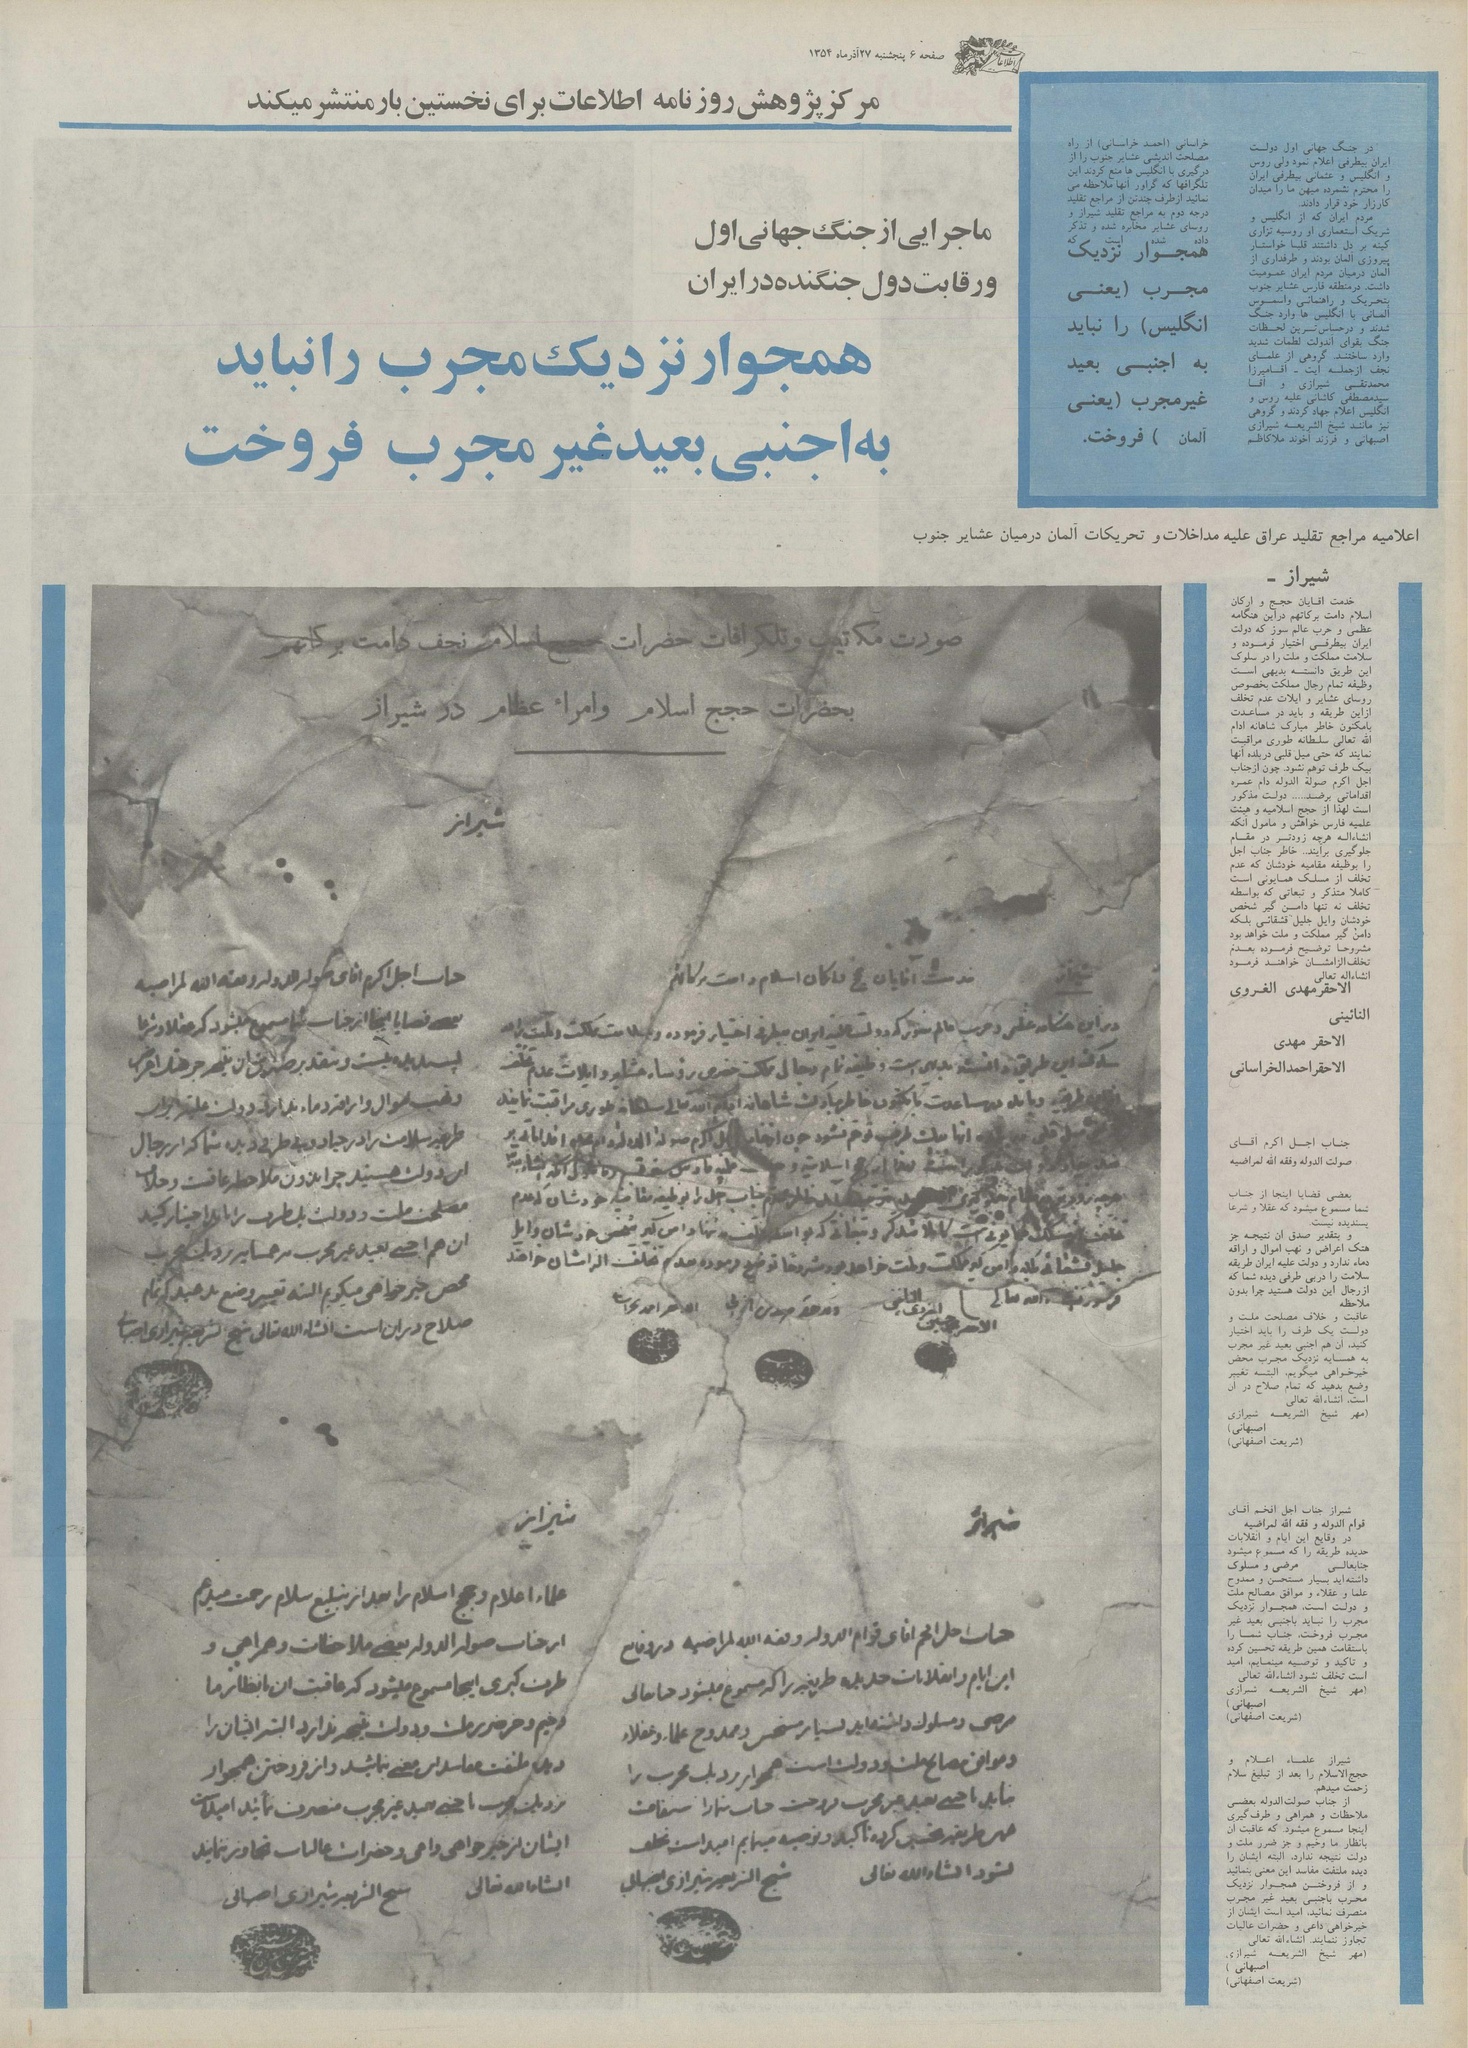 صفحه ۶ پنجشنبه ۲۷ آذر ماه ۱۳۵۴
مرکز پژوهش روزنامه اطلاعات برای نخستین بار منتشر میکند
در جنگ جهانی اول دولت
ایران بیطرفی اعلام نمود ولی روس
و انگلیس و عثمانی بیطرفی ایران
را محترم نشمرده میهن ما را میدان
کارزار خود قرار دادند.
مردم ایران که از انگلیس و
شریک استعماری او روسیه تزاری
کینه بر دل داشتند قلبا خواستار
پیروزی آلمان بودند و طرفداری از
آلمان درمیان مردم ایران عمومیت
داشت. درمنطقه فارس عشایر جنوب
بتحریک و راهنمائی واسموس
آلمانی با انگلیس ها وارد جنگ
شدند و درحساس‌ترین لحظات
جنگ بقوای آندولت لطمات شدید
وارد ساختند. گروهی از علمای
نجف ازجمله آیت ـ آقامیرزا
محمدتقی شیرازی و آقا
سیدمصطفی کاشانی علیه روس و
انگلیس اعلام جهاد کردند و گروهی
نیز مانند شیخ الشریعه شیرازی
اصبهانی و فرزند آخوند ملاکاظم
خراسانی (احمد خراسانی) از راه
مصلحت اندیشی عشایر جنوب را از
درگیری با انگلیس ها منع کردند این
تلگرافها که گراور آنها ملاحظه می
نمائید ازطرف چندتن از مراجع تقلید
درجه دوم به مراجع تقلید شیراز و
روسای عشایر مخابره شده و تذکر
داده شده است که
همجوار نزدیک
مجرب (یعنی
انگلیس) را نباید
به اجنبی بعید
غیرمجرب (یعنی
آلمان ) فروخت.
ماجرایی از جنگ جهانی اول
ورقابت دول جنگنده در ایران
همجوار نزدیک مجرب را نباید
به اجنبی بعید غیر مجرب فروخت
اعلامیه مراجع تقلید عراق علیه مداخلات و تحریکات آلمان درمیان عشایر جنوب
شیراز ـ
خدمت آقایان حجج و ارکان
اسلام دامت برکاتهم دراین هنگامه
عظمی و حرب عالم سوز که دولت
ایران بیطرفی اختیار فرموده و
سلامت مملکت و ملت را در سلوک
این طریق دانسته بدیهی است
وظیفه تمام رجال مملکت بخصوص
روسای عشایر و ایلات عدم تخلف
ازاین طریقه و باید در مساعدت
بامکنون خاطر مبارک شاهانه ادام
الله تعالی سلطانه طوری مراقبت
نمایند که حتی میل قلبی درباره آنها
بیک طرف توهم نشود. چون ازجناب
اجل اکرم صولة الدوله دام عمره
اقداماتی برضد..... دولت مذکور
است لهذا از حجج اسلامیه و هیئت
علمیه فارس خواهش و مامول آنکه
انشاءاله هرچه زودتر در مقام
جلوگیری برآیند.. خاطر جناب اجل
را بوظیفه مقامیه خودشان که عدم
تخلف از مسلک همایونی است
کاملا متذکر و تبعاتی که بواسطه
تخلف نه تنها دامن گیر شخص
خودشان وایل جلیل قشقائی بلکه
دامن گیر مملکت و ملت خواهد بود
مشروحا توضیح فرموده بعدم
تخلف‌الزامشان خواهند فرمود
انشاءاله تعالی
الاحقرمهدی الغروی
النائینی
الاحقر مهدی
الاحقراحمدالخراسانی
جناب اجل اکرم آقای
صولت الدوله وفقه الله لمراضیه
بعضی قضایا اینجا از جناب
شما مسموع میشود که عقلا و شرعا
پسندیده نیست.
و بتقدیر صدق آن نتیجه جز
هتک اعراض و نهب اموال و اراقه
دماء ندارد و دولت علیه ایران طریقه
سلامت را دربی طرفی دیده شما که
ازرجال این دولت هستید چرا بدون
ملاحظه
عاقبت و خلاف مصلحت ملت و
دولت یک طرف را باید اختیار
کنید، آن هم اجنبی بعید غیر مجرب
به همسایه نزدیک مجرب محض
خیرخواهی میگویم، البته تغییر
وضع بدهید که تمام صلاح در آن
است. انشاءالله تعالی
(مهر شیخ الشریعه شیرازی
اصبهانی)
(شریعت اصفهانی)
شیراز جناب اجل افخم آقای
قوام الدوله و فقه الله لمراضیه
در وقایع این ایام و انقلابات
جدیده طریقه را که مسموع میشود
جنابعالی مرضی و مسلوک
داشته‌اید بسیار مستحسن و ممدوح
علما و عقلاء و موافق مصالح ملت
و دولت است، همجوار نزدیک
مجرب را نباید باجنبی بعید غیر
مجرب فروخت. جناب شما را
باستقامت همین طریقه تحسین کرده
و تاکید و توصیه مینمایم، امید
است تخلف نشود انشاءالله تعالی
(مهر شیخ الشریعه شیرازی
اصبهانی)
(شریعت اصفهانی)
شیراز علماء اعلام و
حجج‌الاسلام را بعد از تبلیغ سلام
زحمت میدهم.
از جناب صولت‌الدوله بعضی
ملاحظات و همراهی و طرف‌گیری
اینجا مسموع میشود که عاقبت آن
بانظار ما وخیم و جز ضرر ملت و
دولت نتیجه ندارد، البته ایشان را
دیده ملتفت مفاسد این معنی بنمائید
و از فروختن همجوار نزدیک
مجرب باجنبی بعید غیر مجرب
منصرف نمائید، امید است ایشان از
خیرخواهی داعی و حضرات عالیات
تجاوز ننمایند. انشاءالله تعالی
(مهر شیخ الشریعه شیرازی
اصبهانی )
(شریعت اصفهانی)
صورت مکاتیب و تلگرافات حضرات حجج اسلام نجف دامت برکاتهم
بحضرات حجج اسلام وامراء عظام در شیراز
شیراز
خدمت آقایان حجج و ارکان اسلام دامت برکاتهم
جناب اجل اکرم اقای صولة الدوله وفقه الله لمراضیه
شیراز
جناب اجل افخم اقای قوام الدوله وفقه الله لمراضیه در وقایع
این ایام و انقلابات جدیده طریقه را که مسموع میشود جنابعالی
مرضی و مسلوک داشته‌اید بسیار مستحسن و ممدوح علماء و عقلاء
و موافق مصالح ملت و دولت است همجوار نزدیک مجرب را
نباید باجنبی بعید غیر مجرب فروخت جناب شما را باستقامت
همین طریقه تحسین کرده تاکید و توصیه مینمایم امید است تخلف
نشود انشاءالله تعالی شیخ الشریعه شیرازی اصبهانی
شیراز
علماء اعلام و حجج اسلام را بعد از تبلیغ سلام زحمت میدهم
از جناب صولة الدوله بعضی ملاحظات و همراهی و
طرف گیری اینجا مسموع میشود که عاقبت ان بانظار ما
وخیم و جز ضرر ملت و دولت نتیجه ندارد البته ایشان را
دیده ملتفت مفاسد این معنی نمائید و از فروختن همجوار
نزدیک مجرب باجنبی بعید غیر مجرب منصرف نمائید امید است
ایشان از خیرخواهی داعی و حضرات عالیات تجاوز ننمایند
انشاءالله تعالی شیخ الشریعه شیرازی اصبهانی